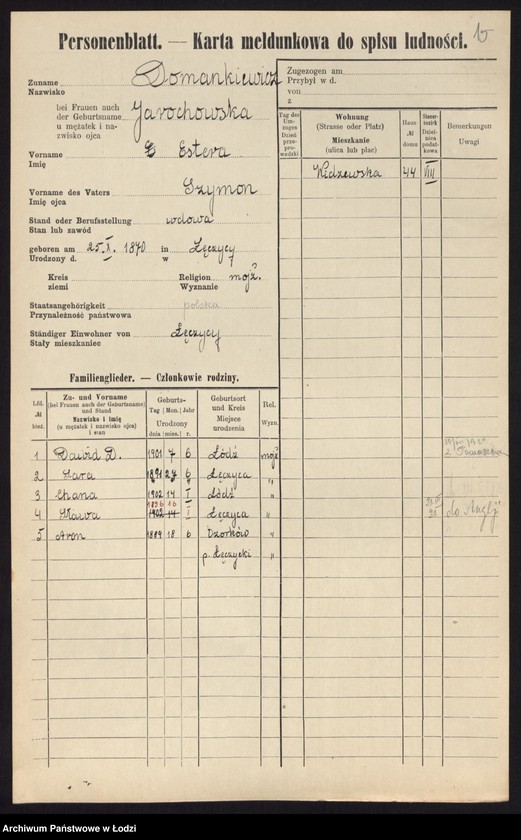 Personenblatt. — Karta meldunkowa do spisu ludności.
Zuname Domankiewicz
Nazwisko
bei Frauen auch
der Geburtsname Jarochowska
u mężatek i na-
zwisko ojca
Vorname Estera
Imię
Vorname des Vaters Szymon
Imię ojca
Stand oder Berufsstellung wdowa
Stan lub zawód
geboren am 25.X. 1870 in Łęczycy
Urodzony d. w
Kreis Religion mojż.
ziemi Wyznanie
Staatsangehörigkeit polska
Przynależność państwowa
Ständiger Einwohner von Łęczycy
Stały mieszkaniec
Zugezogen am
Przybył w d.
von
z
Tag des Um-zuges Dzień prze-prowadzki
Wohnung (Strasse oder Platz) Mieszkanie (ulica lub plac)
Haus- № domu
Steuer-bezirk Dzielnica podat-kowa
Bemerkungen Uwagi
Widzewska 44 VIII
Familienglieder. — Członkowie rodziny.
Lfd. № bież.
Zu- und Vorname (bei Frauen auch der Geburtsname) und Stand Nazwisko i imię (u mężatek i nazwisko ojca) i stan
Geburts- Tag Mon. Jahr Urodzony dnia mies. r.
Geburtsort und Kreis Miejsce urodzenia
Rel. Wyzn.
1 Dawid D. 1901 7 6 Łódź mojż
2 Sara 1891 27 6 Łęczyca "
3 Chana 1902 14 I Łódź "
1896 16
4 1902 14 I Łęczyca "
do Anglji
5 Aron 1889 18 6 Ozorków "
p. Łęczycki "
Archiwum Państwowe w Łodzi